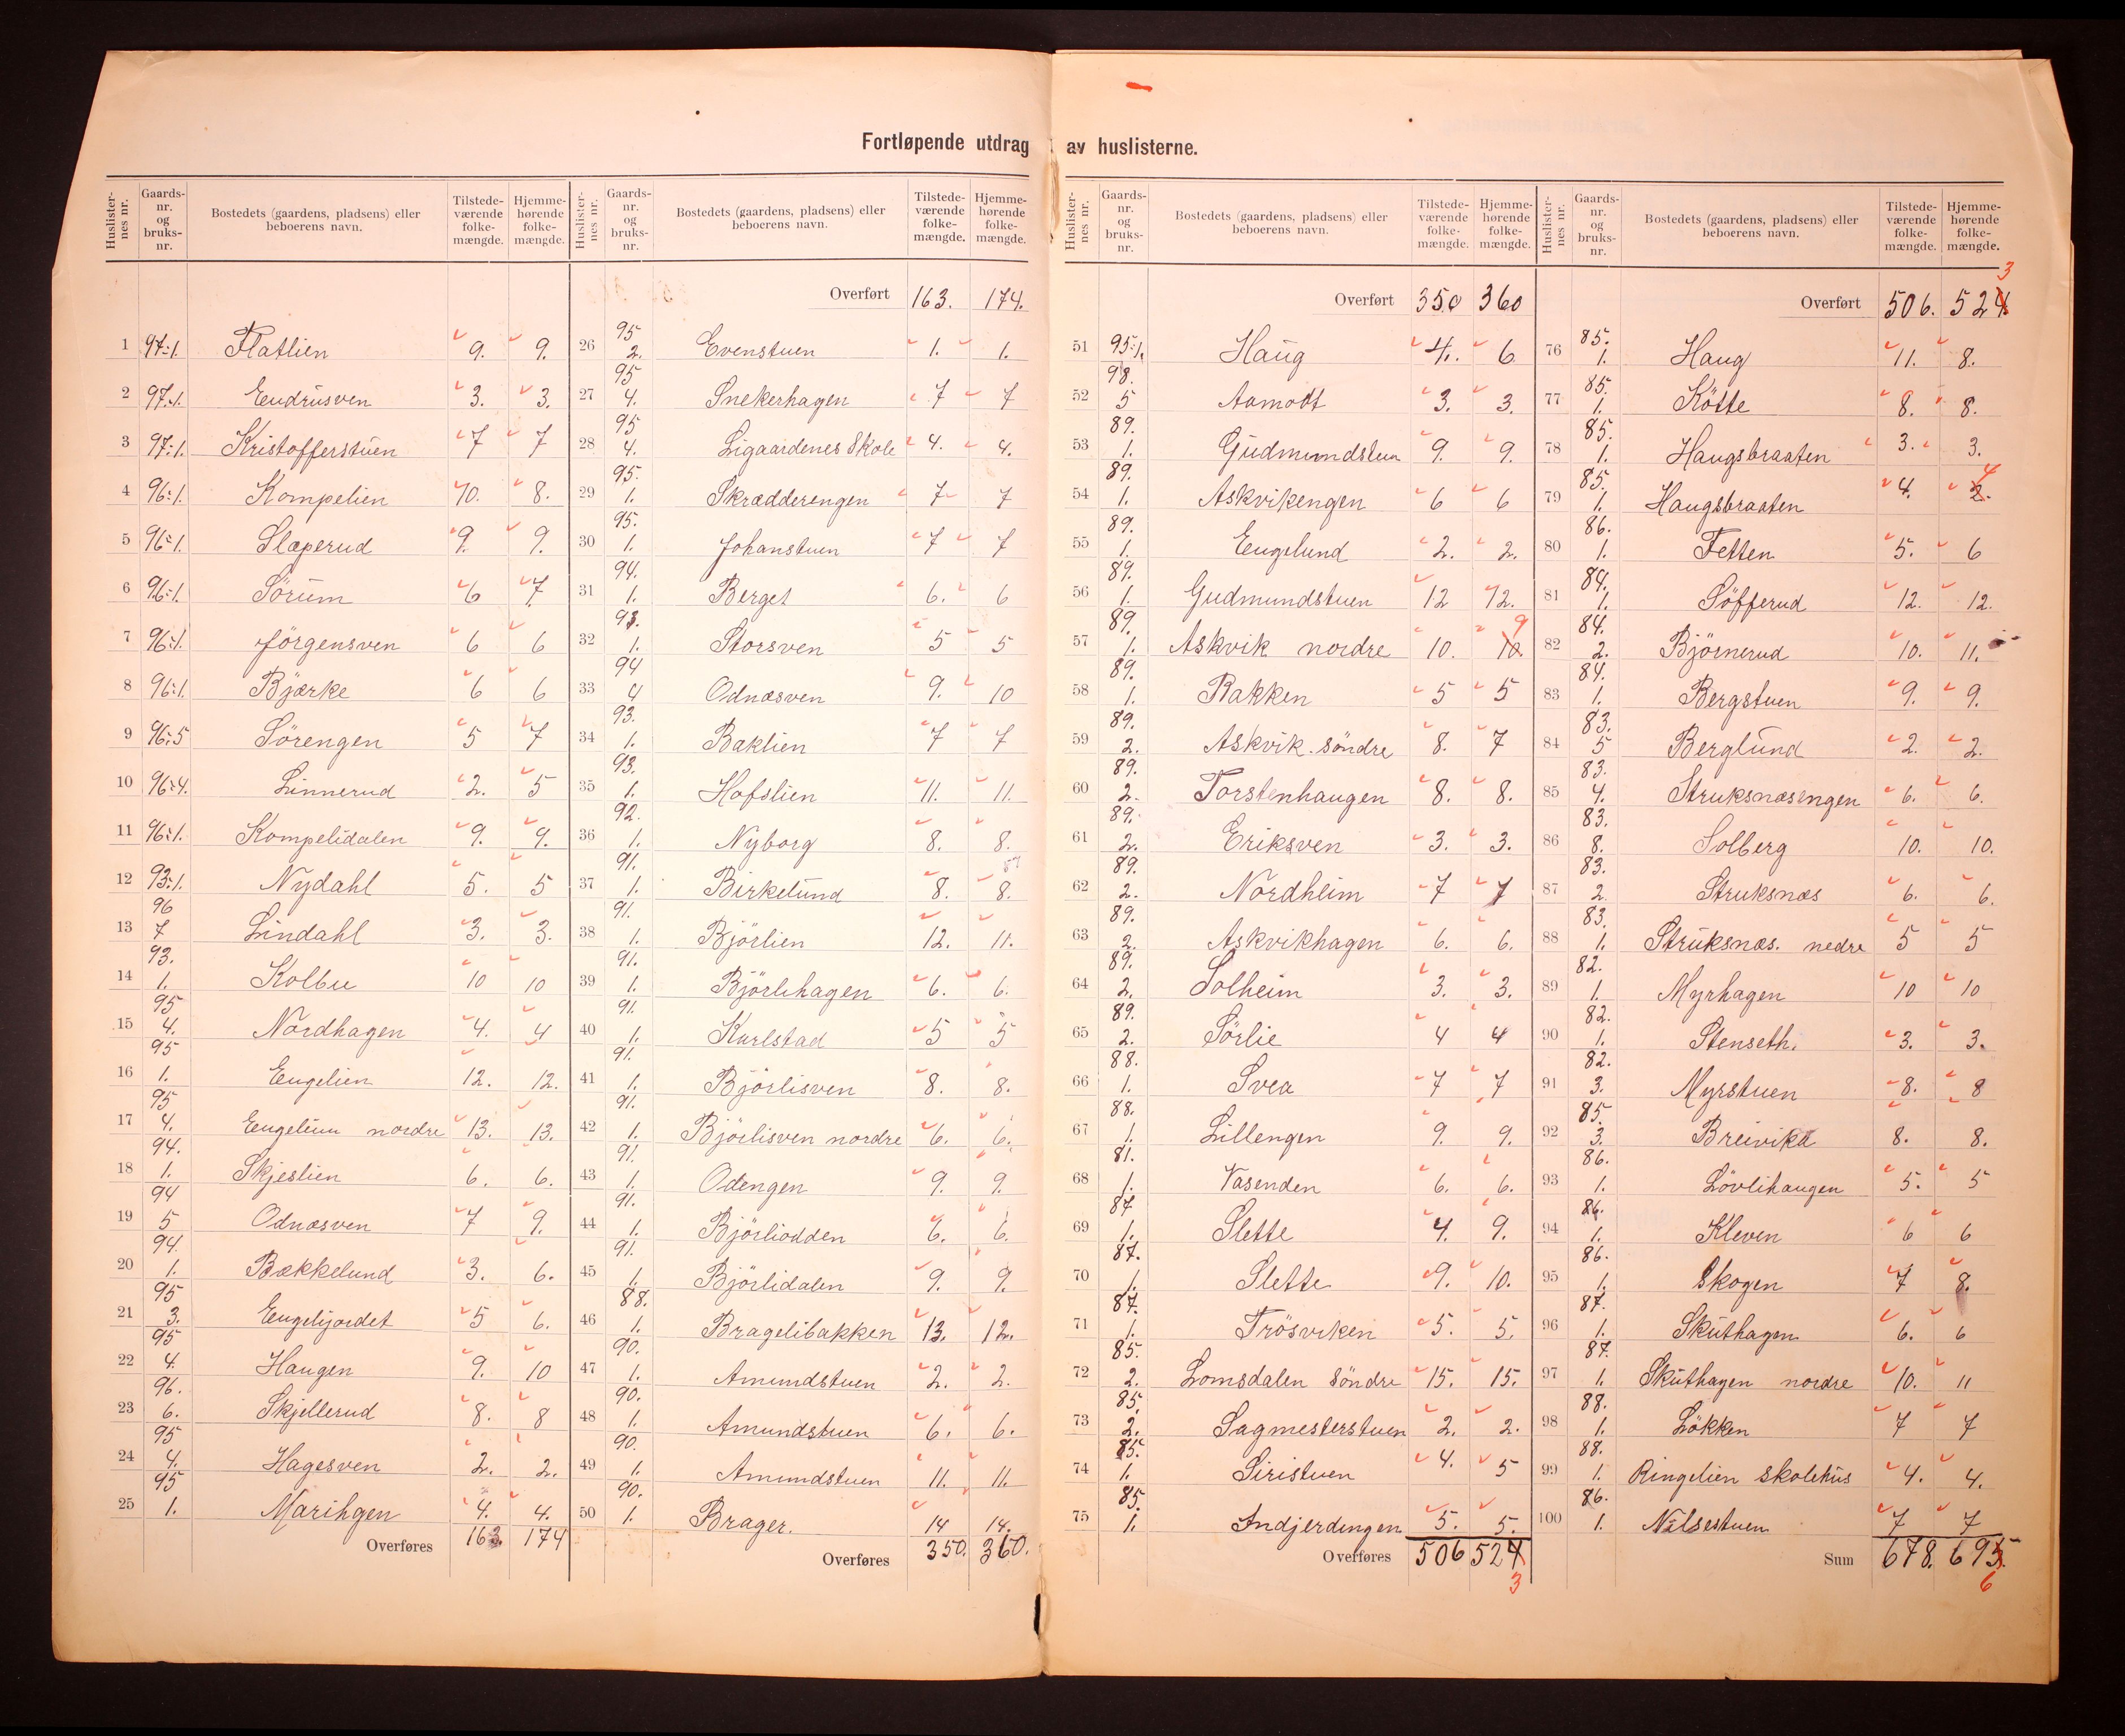 Fortløpende utdrag av huslisterne.
Huslisternes nr. | Gaards-nr. og bruks-nr. | Bostedets (gaardens, pladsens) eller beboerens navn. | Tilstedeværende folkemængde. | Hjemmehørende folkemængde.
1 97:1. Flatlien 9. 9.
2 97:1. Eudrusven 3. 3.
3 97:1. Kristofferstuen 7 7
4 96:1. Kompelien 10. 8.
5 96:1. Slæperud 9. 9.
6 96:1. Sörum 6 7.
7 96:1. Jörgensven 6 6
8 96:1. Bjærke 6 6
9 96:5 Sörengen 5 7
10 96:4. Linnerud 2. 5
11 96:1. Kompelidalen 9. 9.
12 93:1. Nydahl 5. 5
13 96 7 Lindahl 3. 3.
14 93. 1. Kolbu 10 10
15 95 4. Nordhagen 4. 4
16 95 1. Engelien 12. 12.
17 95 4. Engelien nordre 13. 13.
18 94. 1. Skjeslien 6. 6.
19 94 5 Odnæsven 7 9.
20 94. 1. Bækkelund 3. 6.
21 95 3. Engelijordet 5 6.
22 95 4. Haugen 9. 10
23 96. 6. Skjellerud 8. 8
24 95 4. Hagesven 2. 2.
25 95 1. Marihgen 4. 4.
Overføres 163. 174
Huslisternes nr. | Gaards-nr. og bruks-nr. | Bostedets (gaardens, pladsens) eller beboerens navn. | Tilstedeværende folkemængde. | Hjemmehørende folkemængde.
Overført 163. 174.
26 95 2. Evenstuen 1. 1.
27 95 4. Snekerhagen 7 7
28 95 4. Ligaardenes Skole 4. 4.
29 95. 1. Skrædderengen 7 7
30 95. 1. Johanstuen 7 7
31 94. 1. Berget 6. 6
32 93. 1. Storsven 5 5
33 94 4 Odnæsven 9. 10
34 93. 1. Baklien 7 7
35 93. 1. Hofslien 11. 11.
36 92. 1. Nyborg 8. 8.
37 91. 1. Birkelund 8. 8.
38 91. 1. Björlien 12. 11.
39 91. 1. Björlihagen 6. 6.
40 91. 1. Karlstad 5 5
41 91. 1. Björlisven 8. 8.
42 91. 1. Björlisven nordre 6. 6.
43 91. 1. Odengen 9. 9.
44 91. 1. Björliodden 6. 6.
45 91. 1. Björlidalen 9. 9.
46 88. 1. Bragelibakken 13. 12.
47 90. 1. Amundstuen 2. 2.
48 90. 1. Amundstuen 6. 6.
49 90. 1. Amundstuen 11. 11.
50 90. 1. Brager. 14 14.
Overføres 350. 360.
Huslisternes nr. | Gaards-nr. og bruks-nr. | Bostedets (gaardens, pladsens) eller beboerens navn. | Tilstedeværende folkemængde. | Hjemmehørende folkemængde.
Overført 350 360
51 95:1. Haug 4. 6
52 98. 5 Aamodt 3. 3.
53 89. 1. Gudmundstuen 9. 9.
54 89. 1. Askvikengen 6 6
55 89. 1. Engelund 2. 2.
56 89. 1. Gudmundstuen 12 12.
57 89. 1. Askvik nordre 10. 10. 9
58 89. 1. Bakken 5 5
59 89. 2. Askvik söndre 8. 7
60 89. 2. Torstenhaugen 8. 8.
61 89. 2. Eriksven 3. 3.
62 89. 2. Nordheim 7 7
63 89. 2. Askvikhagen 6. 6.
64 89. 2. Solheim 3. 3.
65 89. 2. Sörlie 4 4
66 88. 1. Svea 7 7
67 88. 1. Lillengen 9. 9.
68 81. 1. Vasenden 6. 6.
69 87 1. Slette 4. 9.
70 87. 1. Slette 9. 10.
71 87. 1. Trösviken 5. 5.
72 85. 2. Lomsdalen söndre 15. 15.
73 85. 2. Sagmesterstuen 2. 2.
74 85. 1. Siristuen 4. 5
75 85. 1. Indjerdingen 5. 5.
Overføres 506 524 3
Huslisternes nr. | Gaards-nr. og bruks-nr. | Bostedets (gaardens, pladsens) eller beboerens navn. | Tilstedeværende folkemængde. | Hjemmehørende folkemængde.
Overført 506. 524 3
76 85. 1. Haug 11. 8.
77 85. 1. Kötte 8. 8.
78 85. 1. Haugsbraaten 3. 3.
79 85. 1. Haugsbraaten 4. 2. 4
80 86. 1. Fetten 5. 6
81 84. 1. Söfferud 12. 12.
82 84. 2. Björnerud 10. 11.
83 84. 1. Bergstuen 9. 9.
84 83. 5 Berglund 2. 2.
85 83. 4. Struksnæsengen 6. 6.
86 83. 8. Solberg 10. 10.
87 83. 2. Struksnæs 6. 6.
88 83. 1. Struksnæs. nedre 5 5
89 82. 1. Myrhagen 10 10
90 82. 1. Stenseth. 3. 3.
91 82. 3. Myrstuen 8. 8
92 85. 3. Breivika 8. 8.
93 86. 1. Lövlihaugen 5. 5
94 86. 1. Kleven 6 6
95 86. 1. Skogen 7 8.
96 87. 1. Skuthagen 6. 6
97 87. 1. Skuthagen nordre 10. 11
98 88. 1. Lökken 7 7
99 88. 1. Ringelien skolehus 4. 4.
100 86. 1. Nilsestuen 7 7
Sum 678. 695. 6